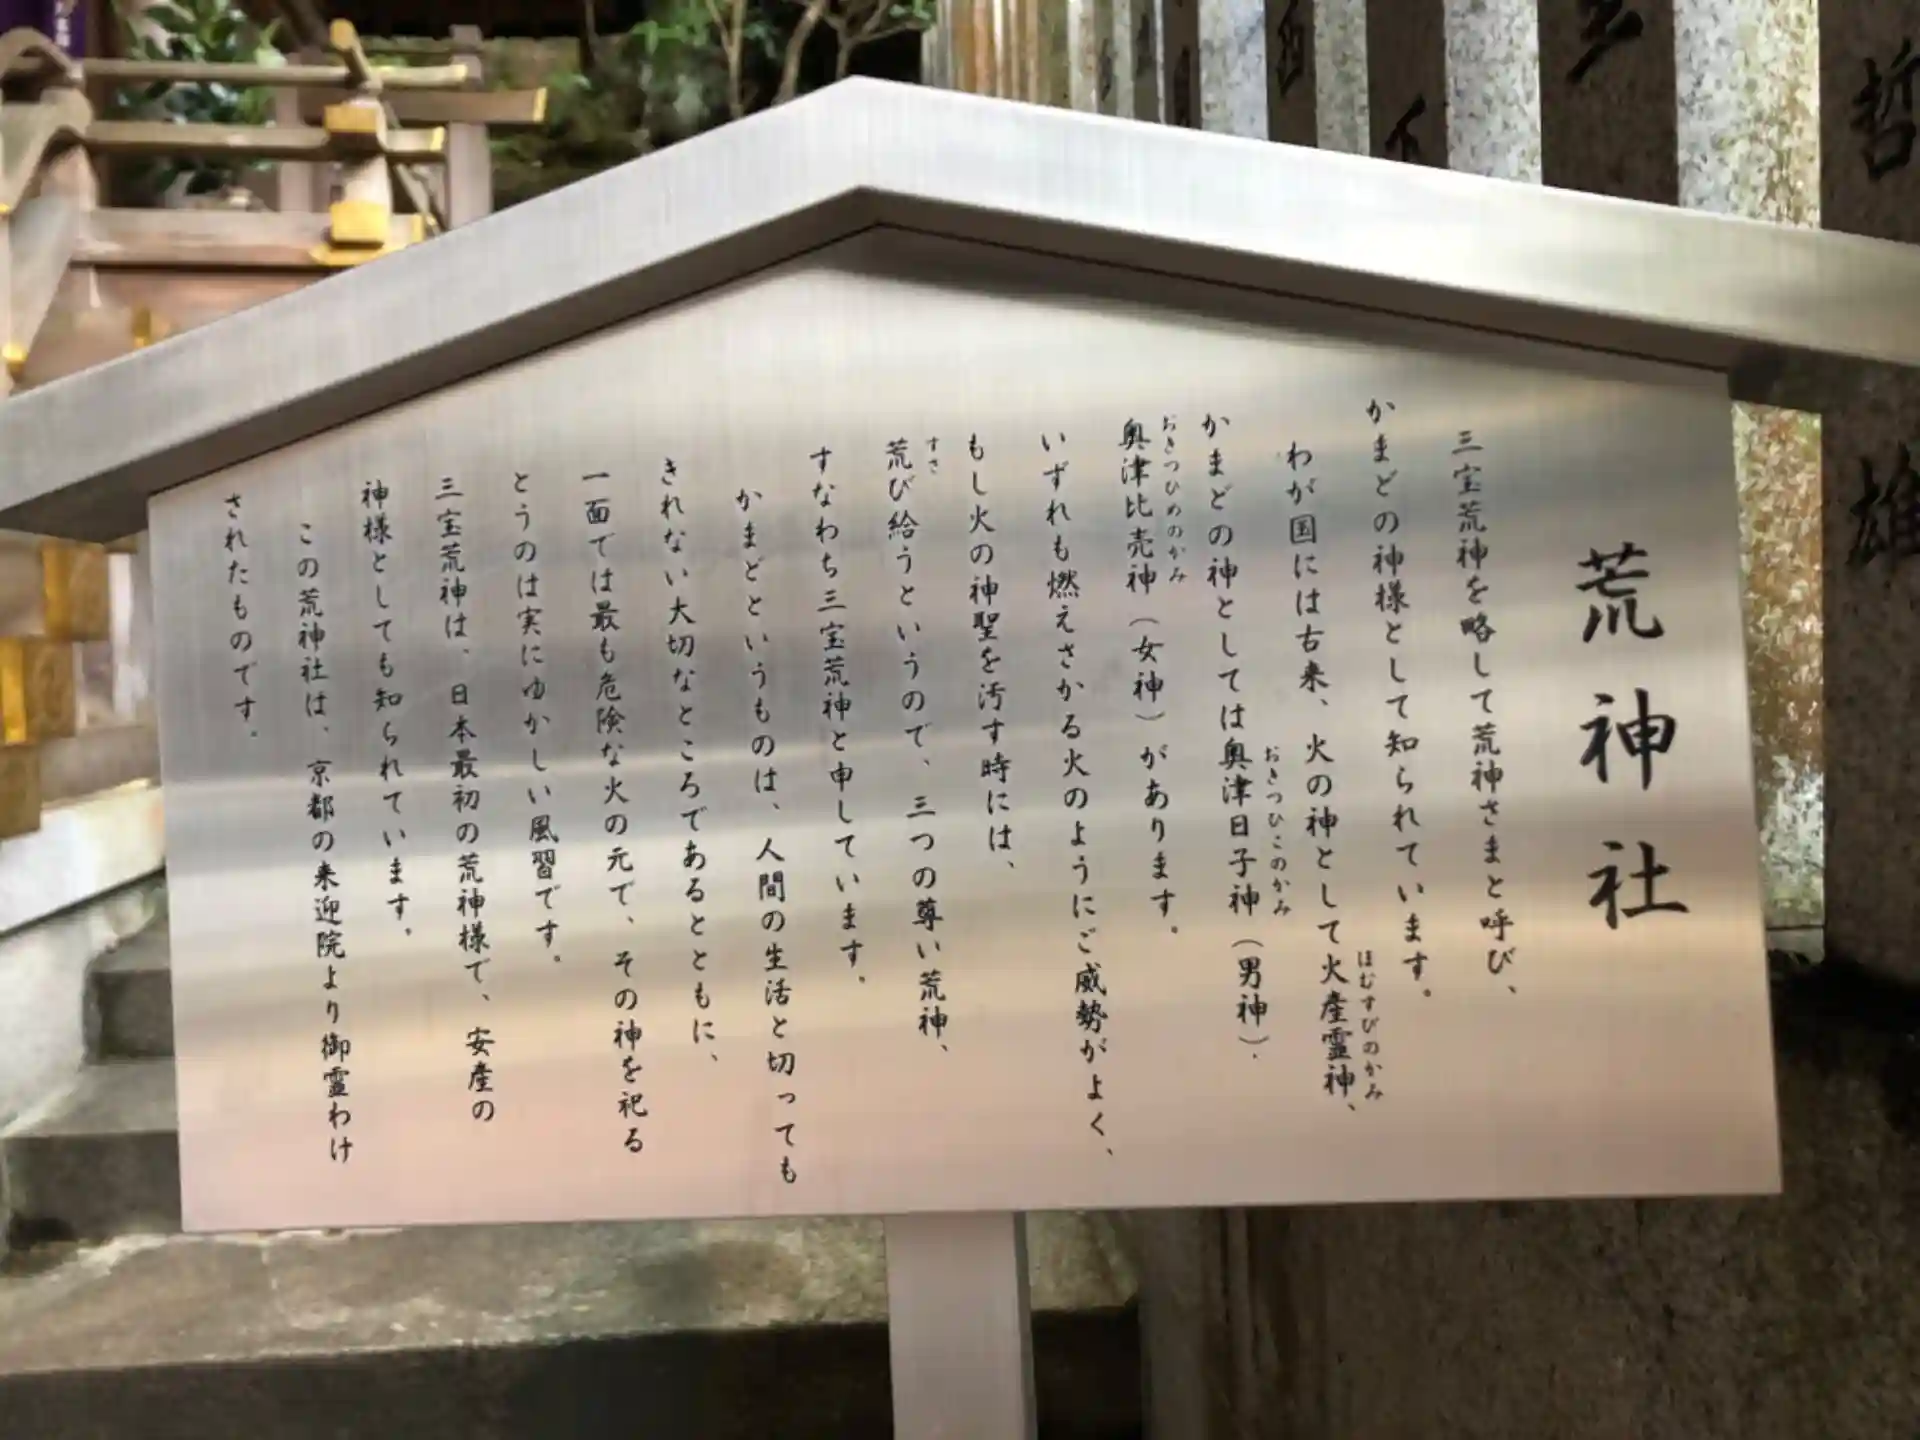 荒神社
三宝荒神を略して荒神さまと呼び、
かまどの神様として知られています。
わが国には古来、火の神として火産霊神、
ほむすびのかみ
かまどの神としては奥津日子神（男神）.
おきつひこのかみ
奥津比売神（女神）があります。
おきつひめのかみ
いずれも燃えさかる火のようにご威勢がよく、
もし火の神聖を汚す時には、
荒び給うというので、三つの尊い荒神、
すさ
すなわち三宝荒神と申しています。
かまどというものは、人間の生活と切っても
きれない大切なところであるとともに、
一面では最も危険な火の元で、その神を祀る
とうのは実にゆかしい風習です。
三宝荒神は、日本最初の荒神様で、安産の
神様としても知られています。
この荒神社は、京都の来迎院より御霊わけ
されたものです。
哲
雄